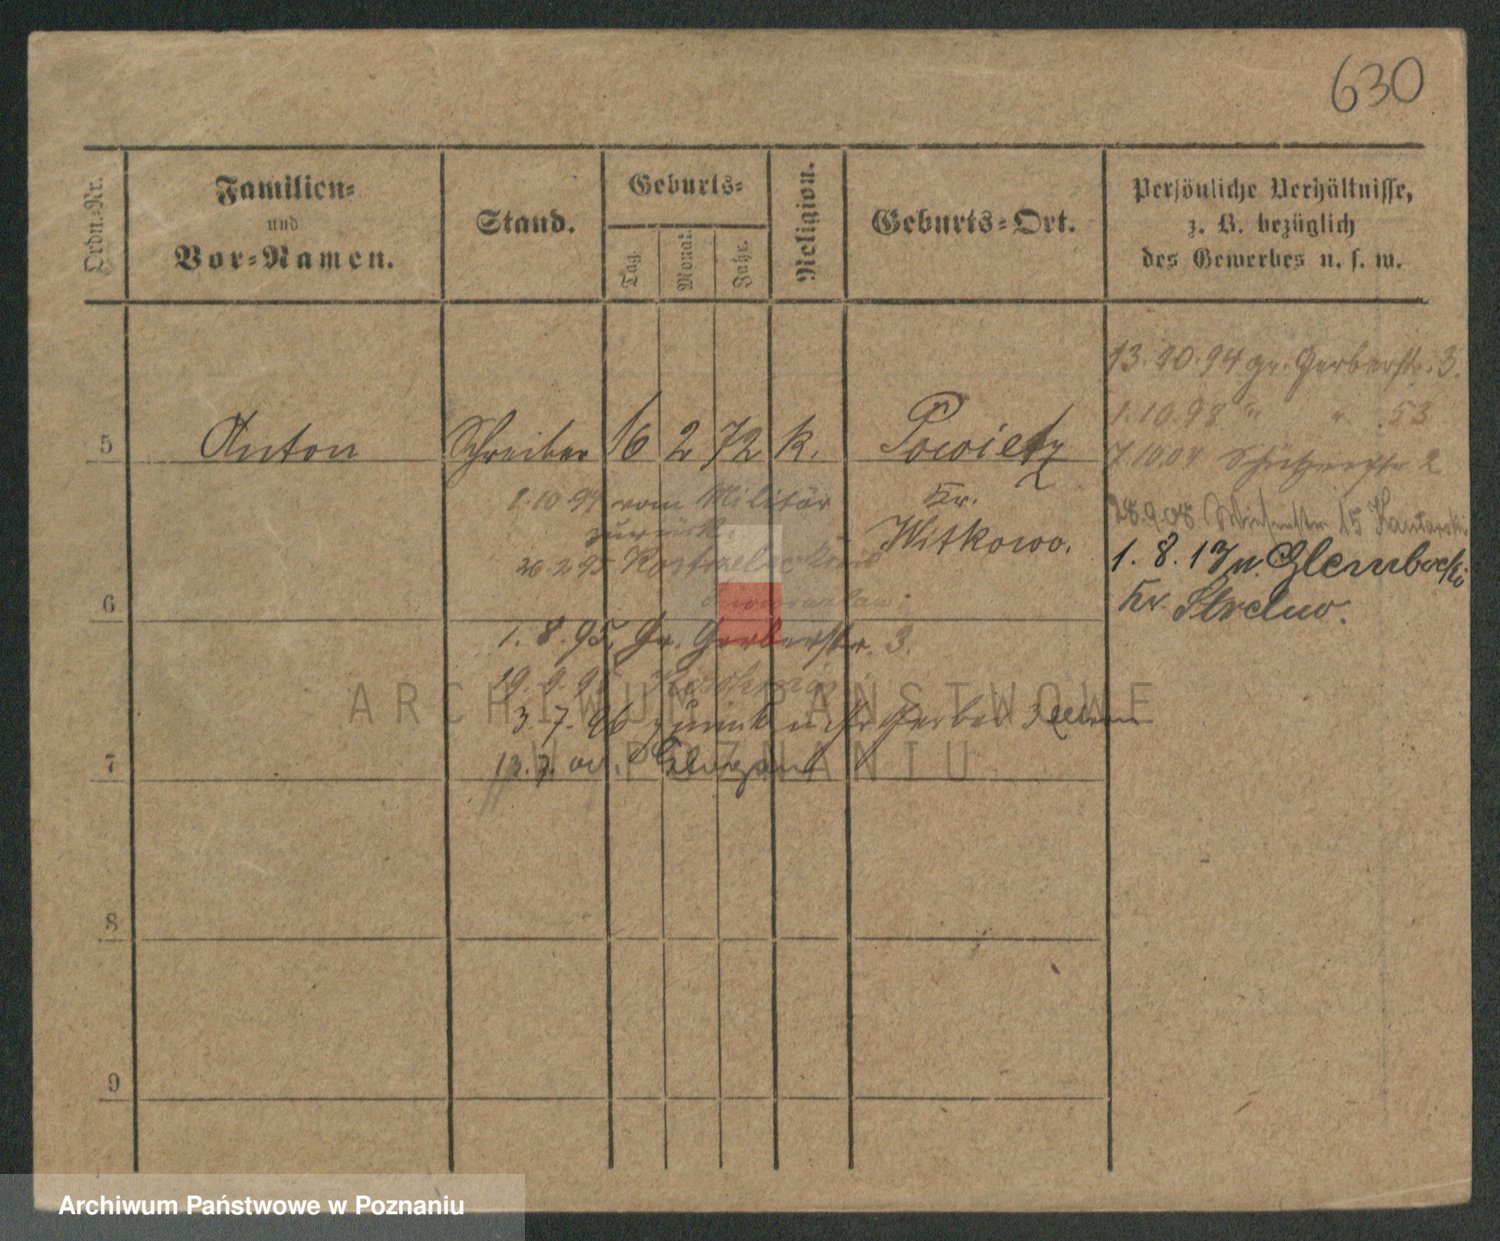 630
Ordn.-Nr.
Familien-
und
Vor-Namen.
Stand.
Geburts-
Tag. Monat. Jahr.
Religion.
Geburts-Ort.
Persönliche Verhältnisse,
z. B. bezüglich
des Gewerbes u. s. w.
13.10.94 gr. Gerberstr. 3.
1.10.98 " " 53
5 Anton Schreiber 16 2 72 k. Powietz
7.10.04 2
Kr.
Witkowo.
8.10.94 vom Militär
zurück.
28.9.08 15
20.2.95
1. 8. 17 n. Glembocki
Kr. Strelno.
6
1. 8. 95. Gr. Gerberstr. 3.
3. 7. 96 zurück
ARCHIWUM PAŃSTWOWE
W POZNANIU
7
8
9
Archiwum Państwowe w Poznaniu